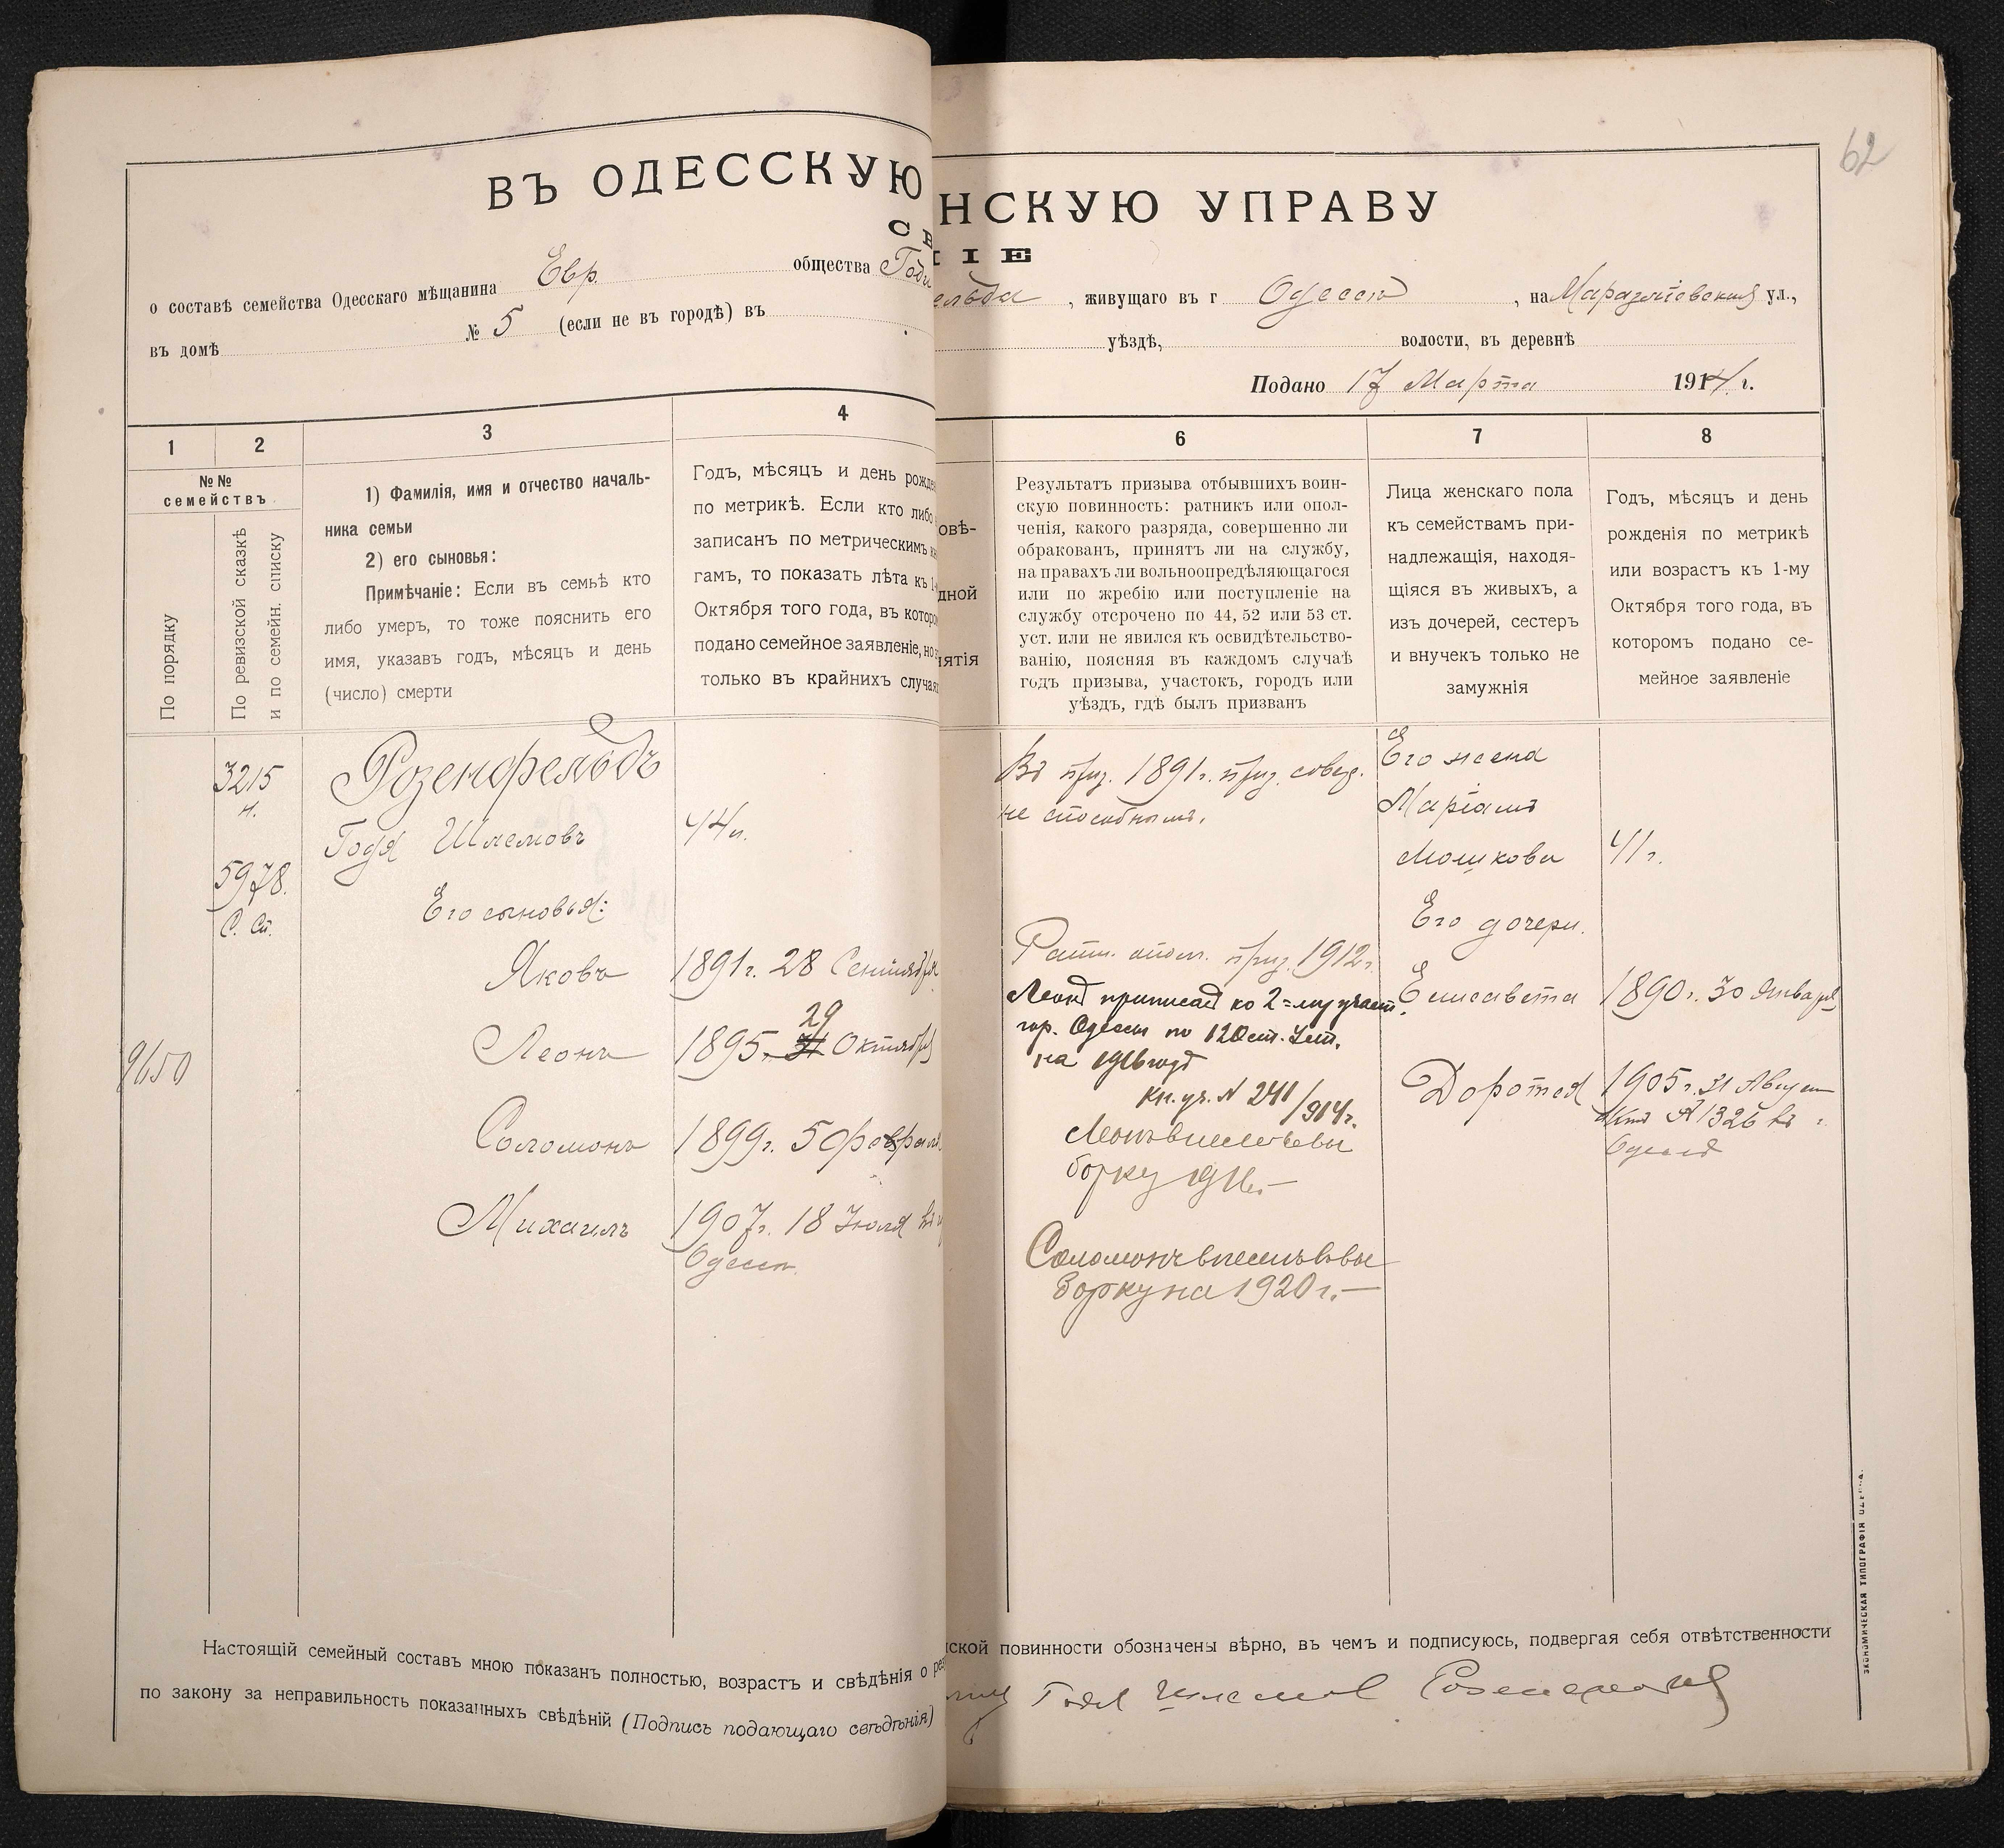 62
ВЪ ОДЕССКУЮ
НСКУЮ УПРАВУ
СВ
ІЕ
о составѣ семейства Одесскаго мѣщанина Евр. общества Годи
ельда, живущаго въ г Одессѣ, на Маразліевской ул.,
въ домѣ № 5 (если не въ городѣ) въ
уѣздѣ, волости, въ деревнѣ
Подано 17 Марта 1914 г.
1
2
3
4
6
7
8
№№
семействъ
По порядку
По ревизской сказкѣ
и по семейн. списку
1) Фамилія, имя и отчество началь-
ника семьи
2) его сыновья:
Примѣчаніе: Если въ семьѣ кто
либо умеръ, то тоже пояснить его
имя, указавъ годъ, мѣсяцъ и день
(число) смерти
Годъ, мѣсяцъ и день рожде
по метрикѣ. Если кто либо
записанъ по метрическимъ
гамъ, то показать лѣта къ 1-
Октября того года, въ которо
подано семейное заявленіе, но
только въ крайнихъ случая
овѣ-
дной
нятія
Результатъ призыва отбывшихъ воин-
скую повинность: ратникъ или опол-
ченія, какого разряда, совершенно ли
обракованъ, принятъ ли на службу,
на правахъ ли вольноопредѣляющагося
или по жребію или поступленіе на
службу отсрочено по 44, 52 или 53 ст.
уст. или не явился къ освидѣтельство-
ванію, поясняя въ каждомъ случаѣ
годъ призыва, участокъ, городъ или
уѣздъ, гдѣ былъ призванъ
Лица женскаго пола
къ семействамъ при-
надлежащія, находя-
щіяся въ живыхъ, а
изъ дочерей, сестеръ
и внучекъ только не
замужнія
Годъ, мѣсяцъ и день
рожденія по метрикѣ
или возрастъ къ 1-му
Октября того года, въ
которомъ подано се-
мейное заявленіе
9650
3215
н.
5978.
С. Сп.
Розенфельдъ
Годя Шлемовъ
Его сыновья:
Яковъ
Леонъ
Соломонъ
Михаилъ
44 л.
1891 г. 28 Сентября
29
1895. 31 Октября
1899 г. 5 февраля
1907 г. 18 Іюля въ
Одессѣ
Въ приз. 1891 г. приз. совер.
не способнымъ.
Ратн. опол. приз. 1912 г.
Леонъ приписанъ ко 2=му участ.
гор. Одессы по 120 ст. Уст.
на 1916 годъ
Кн. уч. N 241/914 г.
Леонъ внесенъ въ вы
борку 1916 г.—
Соломонъ внесенъ въ вы
борку на 1920 г.—
Его жена
Маріамъ
Мошкова
Его дочери.
Елисавета
Доротея
41 г.
1890 г. 30 Января
1905 г. 31 Август
Актъ № 1326 въ г.
Одессѣ
Настоящій семейный составъ мною показанъ полностью, возрастъ и свѣдѣнія о
ской повинности обозначены вѣрно, въ чемъ и подписуюсь, подвергая себя отвѣтственности
по закону за неправильность показанныхъ свѣдѣній (Подпись подающаго свѣдѣнія)
Годя Шлемов Розенфельд
ЭКОНОМИЧЕСКАЯ ТИПОГРАФІЯ ОДЕССА.